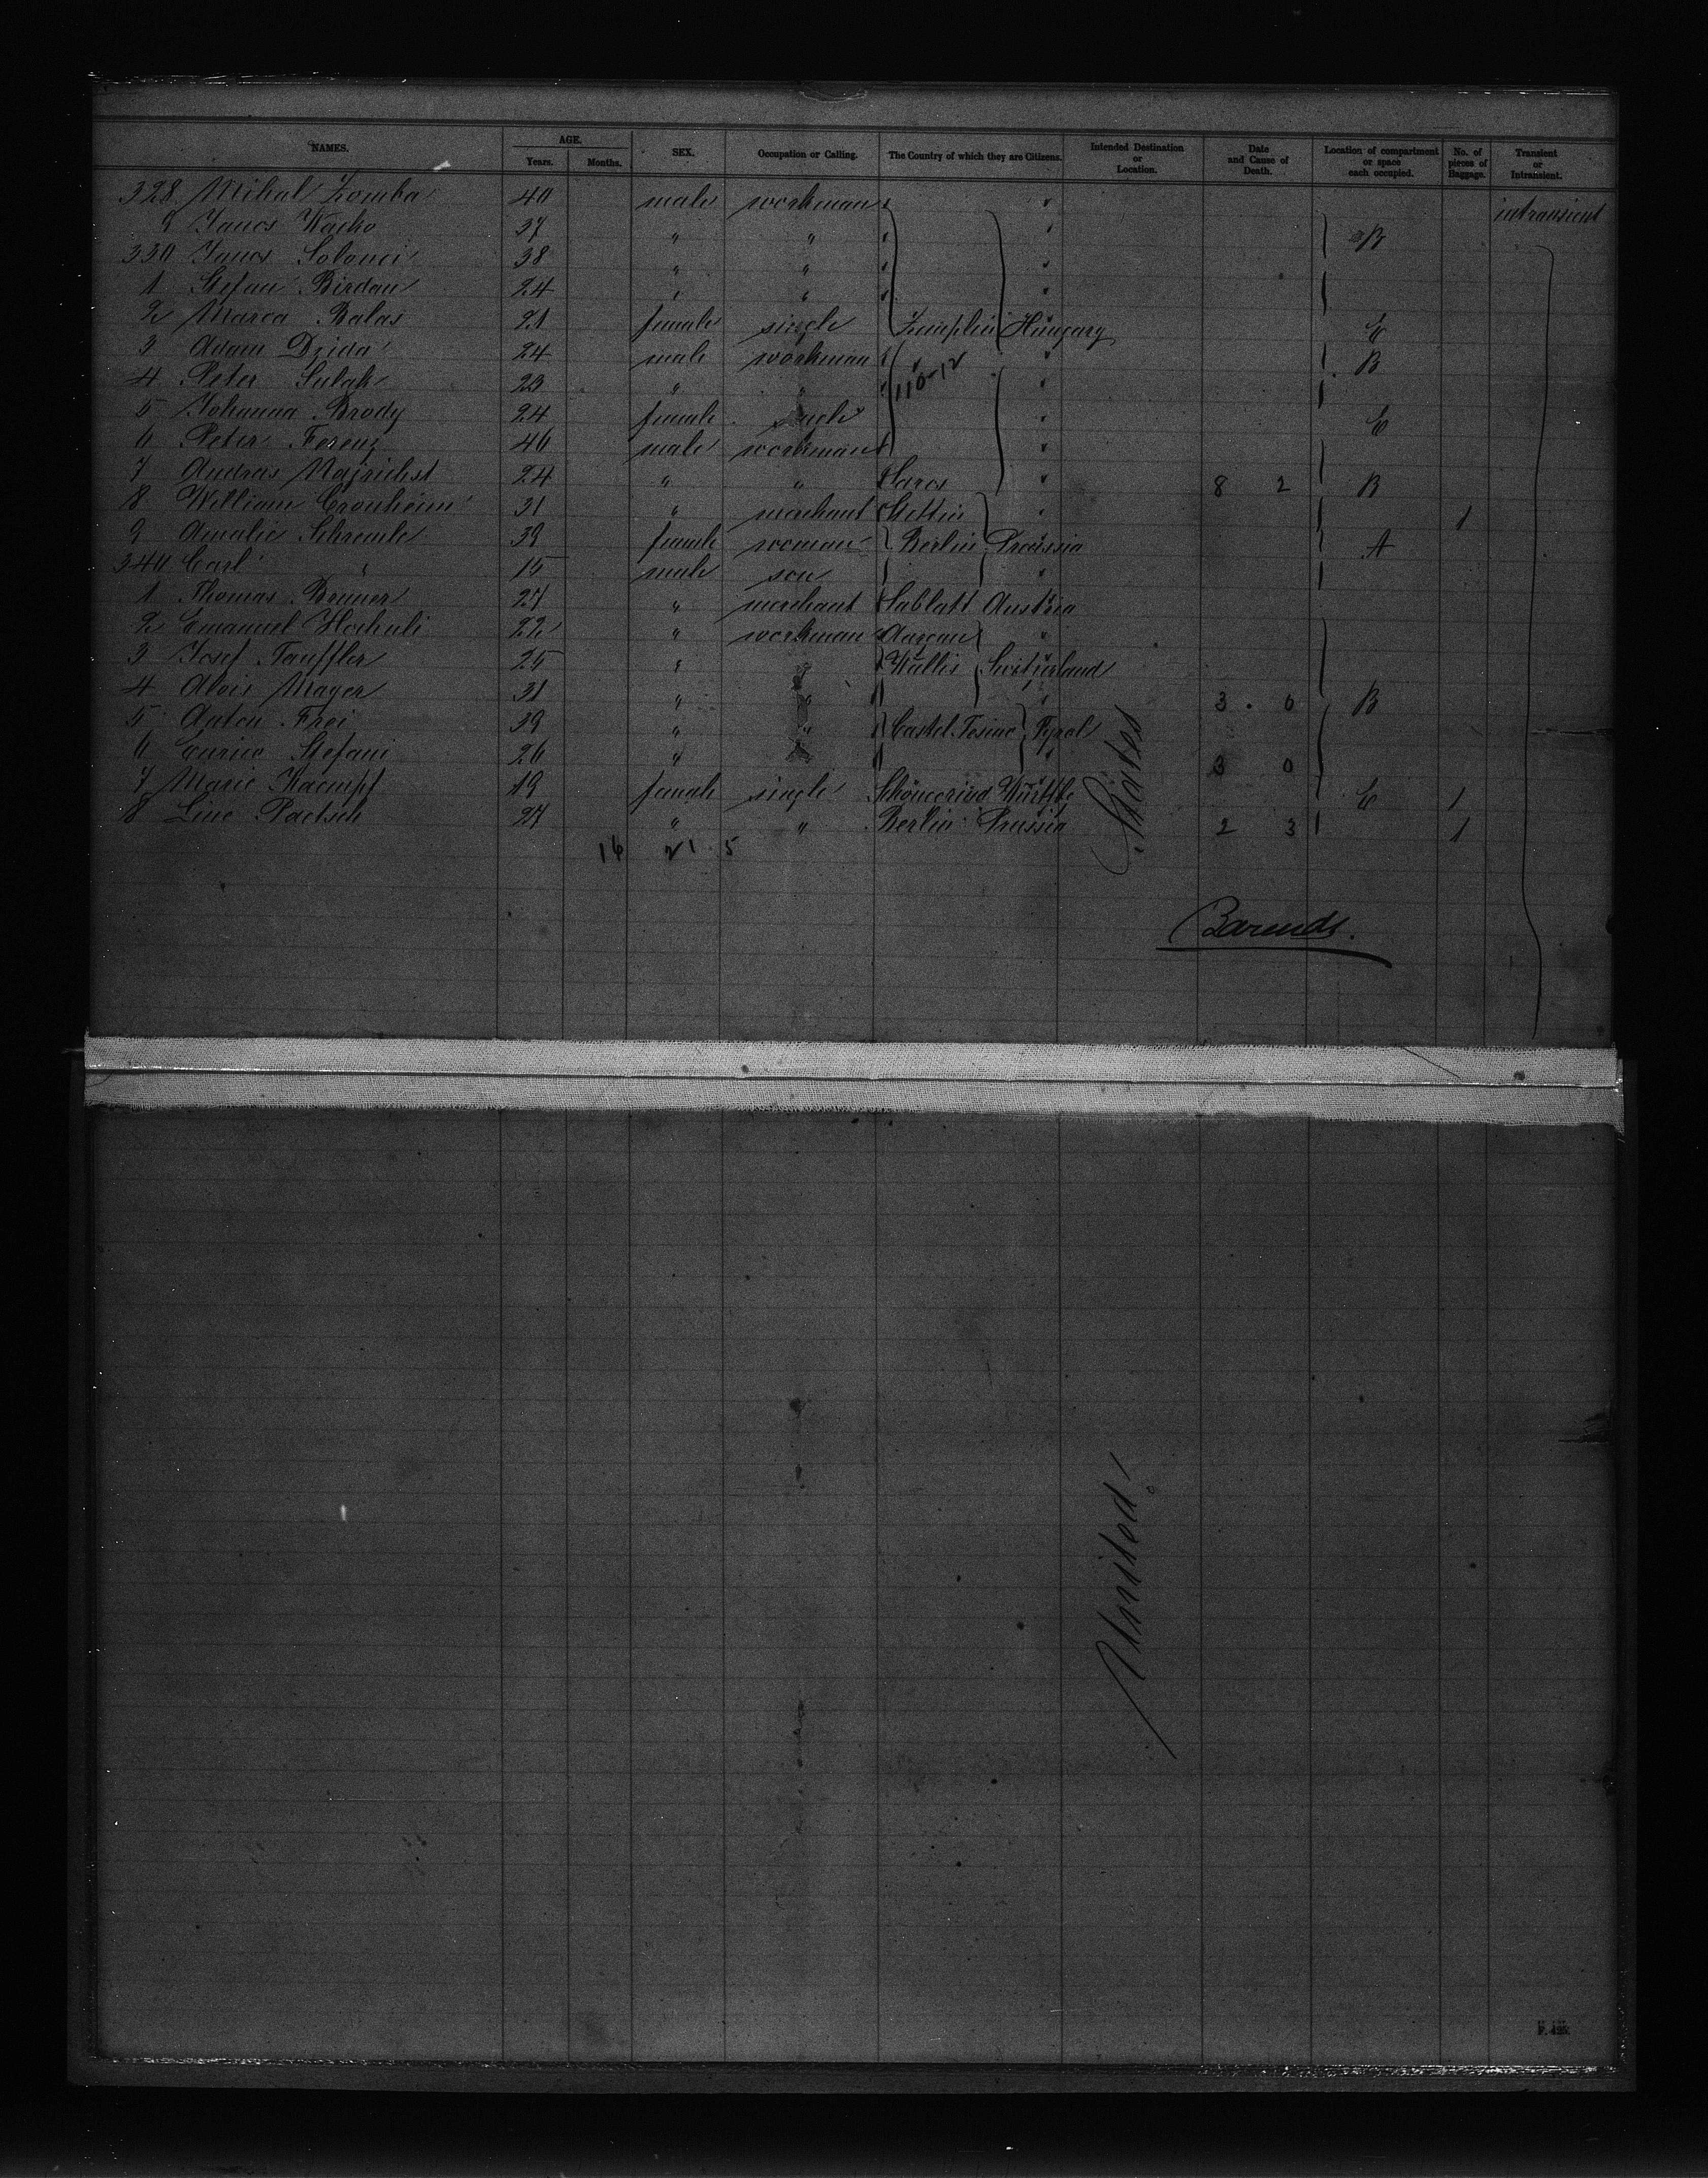 NAMES. AGE. Years. Months. SEX. Occupation or Calling. The Country of which they are Citizens. Intended Destination or Location. Date and Cause of Death. Location of compartment or space each occupied. No. of pieces of Baggage. Transient or Intransient.
328 Mihal Zomba 40 male workman " intransient
9 Janos Wacko 37 " " " B
330 Janos Solonci 38 " " "
1 Stefan Birdau 24 " " "
2 Marca Balas 21 female single Zemplin Hungary E
3 Adam Dzida 24 male workman " B
4 Peter Sulak 23 " " 110-12 "
5 Johanna Brody 24 female single " E
6 Peter Ferenz 46 male workman "
7 Andras 24 " " Saros " 8 2 B
8 William Cronheim 31 " merchant Stettin " 1
9 Amalie Schremle 39 female woman Berlin Prussia A
340 Carl " 15 male son "
1 Thomas Brüner 27 " merchant Sablatt Austria
2 Emanuel Hochuli 22 " workman Aargau "
3 Josef Tauffler 25 " " Wallis Switzerland
4 Alois Mayer 31 " " " 3 . 0 B
5 Anton Frei 39 " " Castel Tesino Tyrol
6 Enrico Stefani 26 " " " 3 0
7 Marie Kaempf 19 female single Württbg E 1
8 Line Paetsch 27 " " Berlin Prussia 2 3 1
16 21 . 5
States
Barends.
United
F. 425.